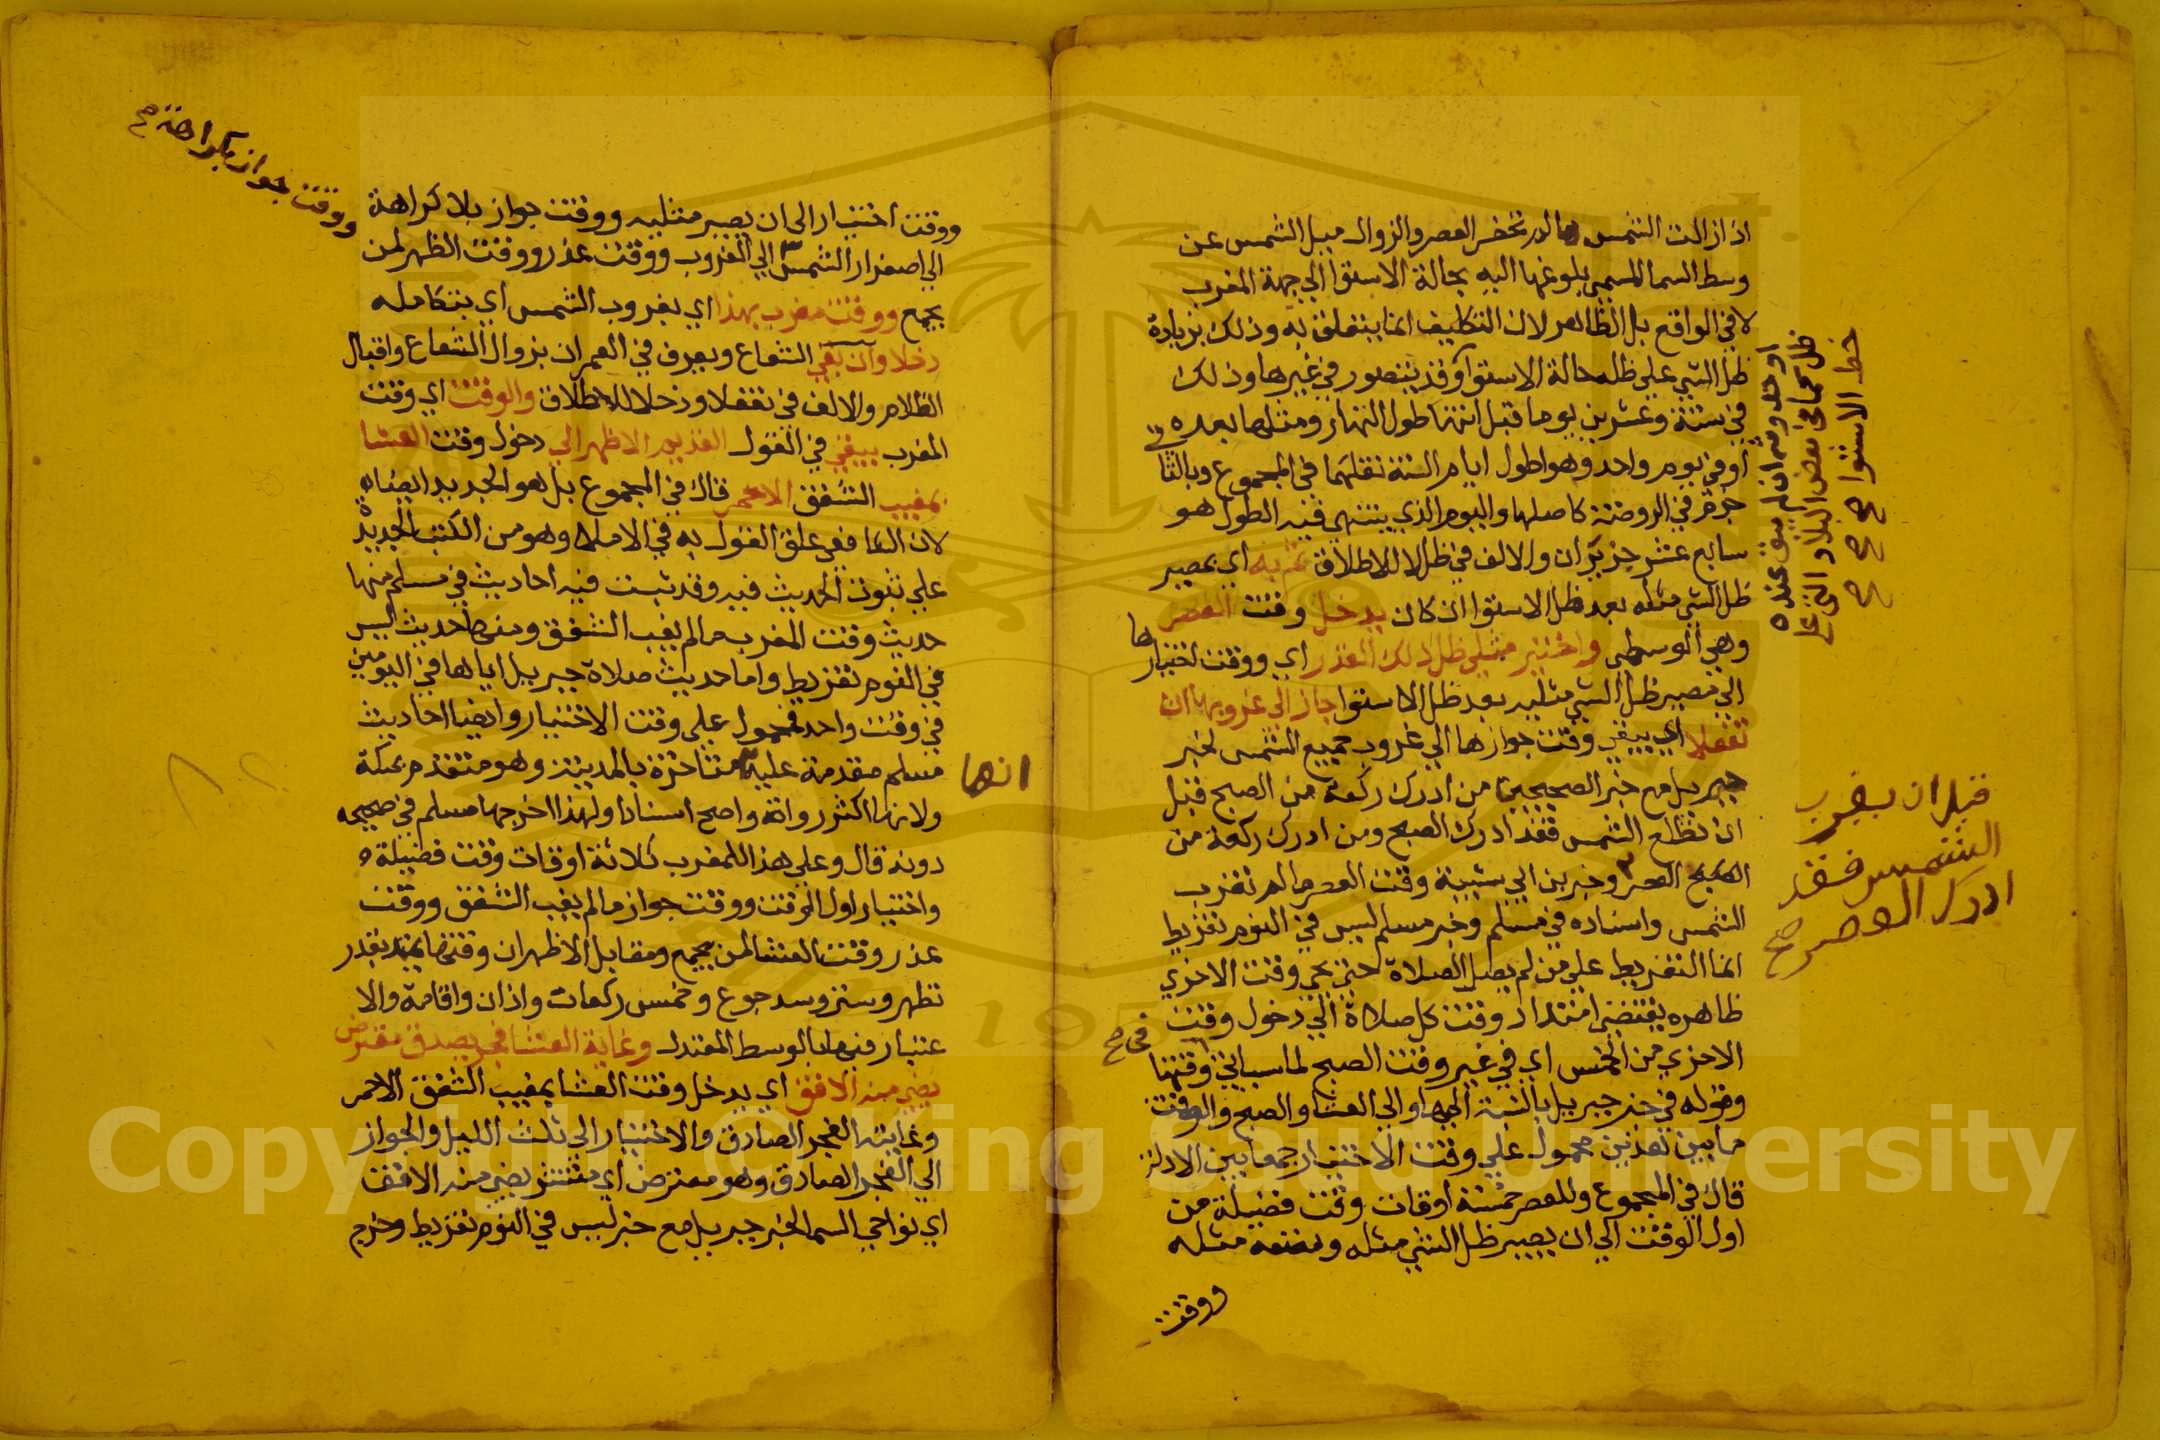 اذا زالت الشمس ما لم تحضر العصر والزوال ميل الشمس عن
وسط السما المسمي بلوغها اليه بحالة الاستوا الي جهة المغرب
لا في الواقع بل الظاهر لان التكليف انما يتعلق به وذلك بزيادة
ظل الشي علي ظله حالة الاستوا وقد يتصور في غيرها وذلك
في ستة وعشرين يوما قبل انتها طول النهار ومثلها بعده
او في يوم واحد وهو اطول ايام السنة نقلهما في المجموع وبالثاني
جزم في الروضة كاصلها واليوم الذي ينتهي فيه الطول هو
سابع عشر حزيران والالف في ظلالا للاطلاق ثم به اي بمصير
ظل الشي مثله بعد ظل الاستوا ان كان يدخل وقت العصر
وهي الوسطي واختير مثلي ظل ذلك القدر اي ووقت اختيارها
الي مصير ظل الشي مثليه بعد ظل الاستوا جاز الي غروبها ان
تفعلا اي يبقي وقت جوازها الي غروب جميع الشمس لخبر
جبريل مع خبر الصحيحين من ادرك ركعة من الصبح قبل
ان تطلع الشمس فقد ادرك الصبح ومن ادرك ركعة من
العصر وخبر بن ابي شيبة وقت العصر ما لم تغرب
الشمس واسناده في مسلم وخبر مسلم ليس في النوم تفريط
انما التفريط علي من لم يصل الصلاة حتي يجي وقت الاخري
ظاهره يقتضي امتداد وقت كل صلاة الي دخول وقت
الاخري من الخمس اي في غير وقت الصبح لما سياتي في وقتها
وقوله في خبر جبريل بالنسبة اليها والي العشا والصبح والوقت
ما بين هذين محمول علي وقت الاختيار جمعا بين الادلة
قال في المجموع وللعصر خمسة اوقات وقت فضيلة من
اول الوقت الي ان يصير ظل الشي مثله ونصفه مثله
ووقت
او حدوثه ان لم يبق عنده
ظل كما في بعض البلاد التي علي
خط الاستوا صح صح صح
قبل ان يغرب
الشمس فقد
ادرك العصر صح
ووقت اختيار الي ان يصير مثليه ووقت جواز بلا كراهة
الي اصفرار الشمس الي الغروب ووقت عذر ووقت الظهر لمن
يجمع ووقت مغرب بهذا اي بغروب الشمس اي بتكامله
دخلا وان بقي الشعاع ويعرف في العمران بزوال الشعاع واقبال
الظلام والالف في تفعلا ودخلا للاطلاق والوقت اي وقت
المغرب يبقي في القول القديم الاظهر الي دخول وقت العشا
بمغيب الشفق الاحمر قال في المجموع بل هو الجديد ايضا
لان الشافعي علق القول به في الاملا وهو من الكتب الجديدة
علي ثبوت الحديث فيه وقد ثبت فيه احاديث في مسلم منها
حديث وقت المغرب ما لم يغب الشفق ومنها حديث ليس
في النوم تفريط واما حديث صلاة جبريل اياها في اليومين
في وقت واحد فمحمول علي وقت الاختيار وايضا احاديث
مسلم مقدمة عليه متاخرة بالمدينة وهو متقدم بمكة
ولانها اكثر رواة واصح اسنادا ولهذا اخرجها مسلم في صحيحه
دونه قال وعلي هذا للمغرب ثلاثة اوقات وقت فضيلة
واختيار اول الوقت ووقت جواز ما لم يغب الشفق ووقت
عذر وقت العشا لمن يجمع ومقابل الاظهر ان وقتها يمتد بقدر
تطهر وستر وسد جوع وخمس ركعات واذان واقامة والا
عتبار فيها بالوسط المعتدل وغاية العشا فجر يصدق معترض
يضي منه الافق اي يدخل وقت العشا بمغيب الشفق الاحمر
وغايته الفجر الصادق والاختيار الي ثلث الليل والجواز
الي الفجر الصادق وهو معترض اي منتشر يضي منه الافق
اي نواحي السما لخبر جبريل مع خبر ليس في النوم تفريط وخرج
ووقت جواز بكراهة صح
انها